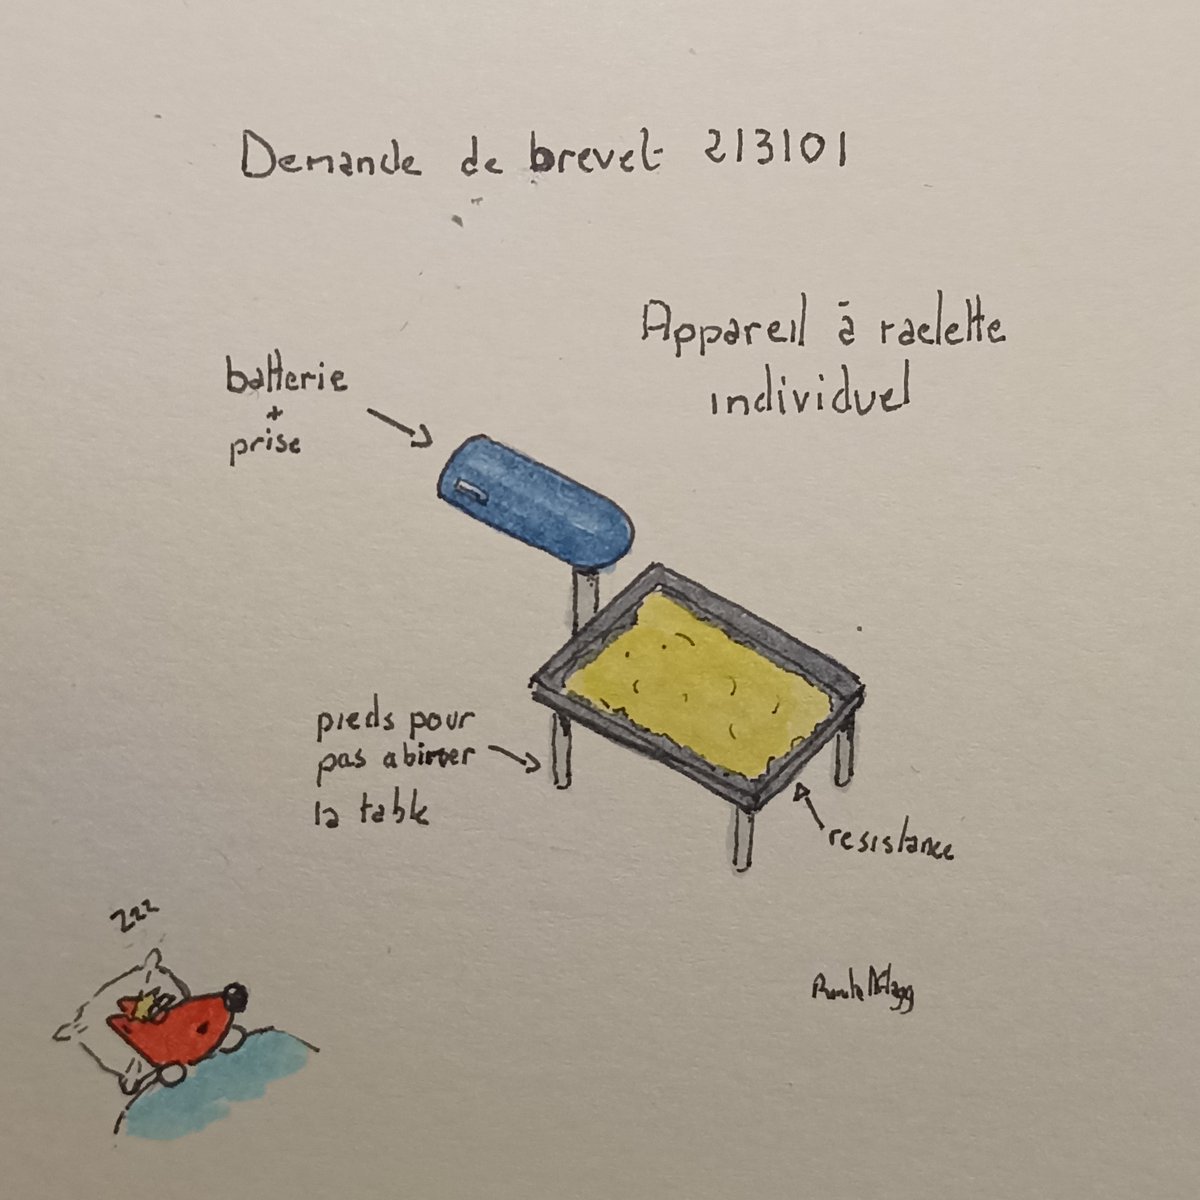 Demande de brevet 213101
Appareil à raclette
individuel
batterie
+
prise
pieds pour
pas abimer
la table
resistance
zzz